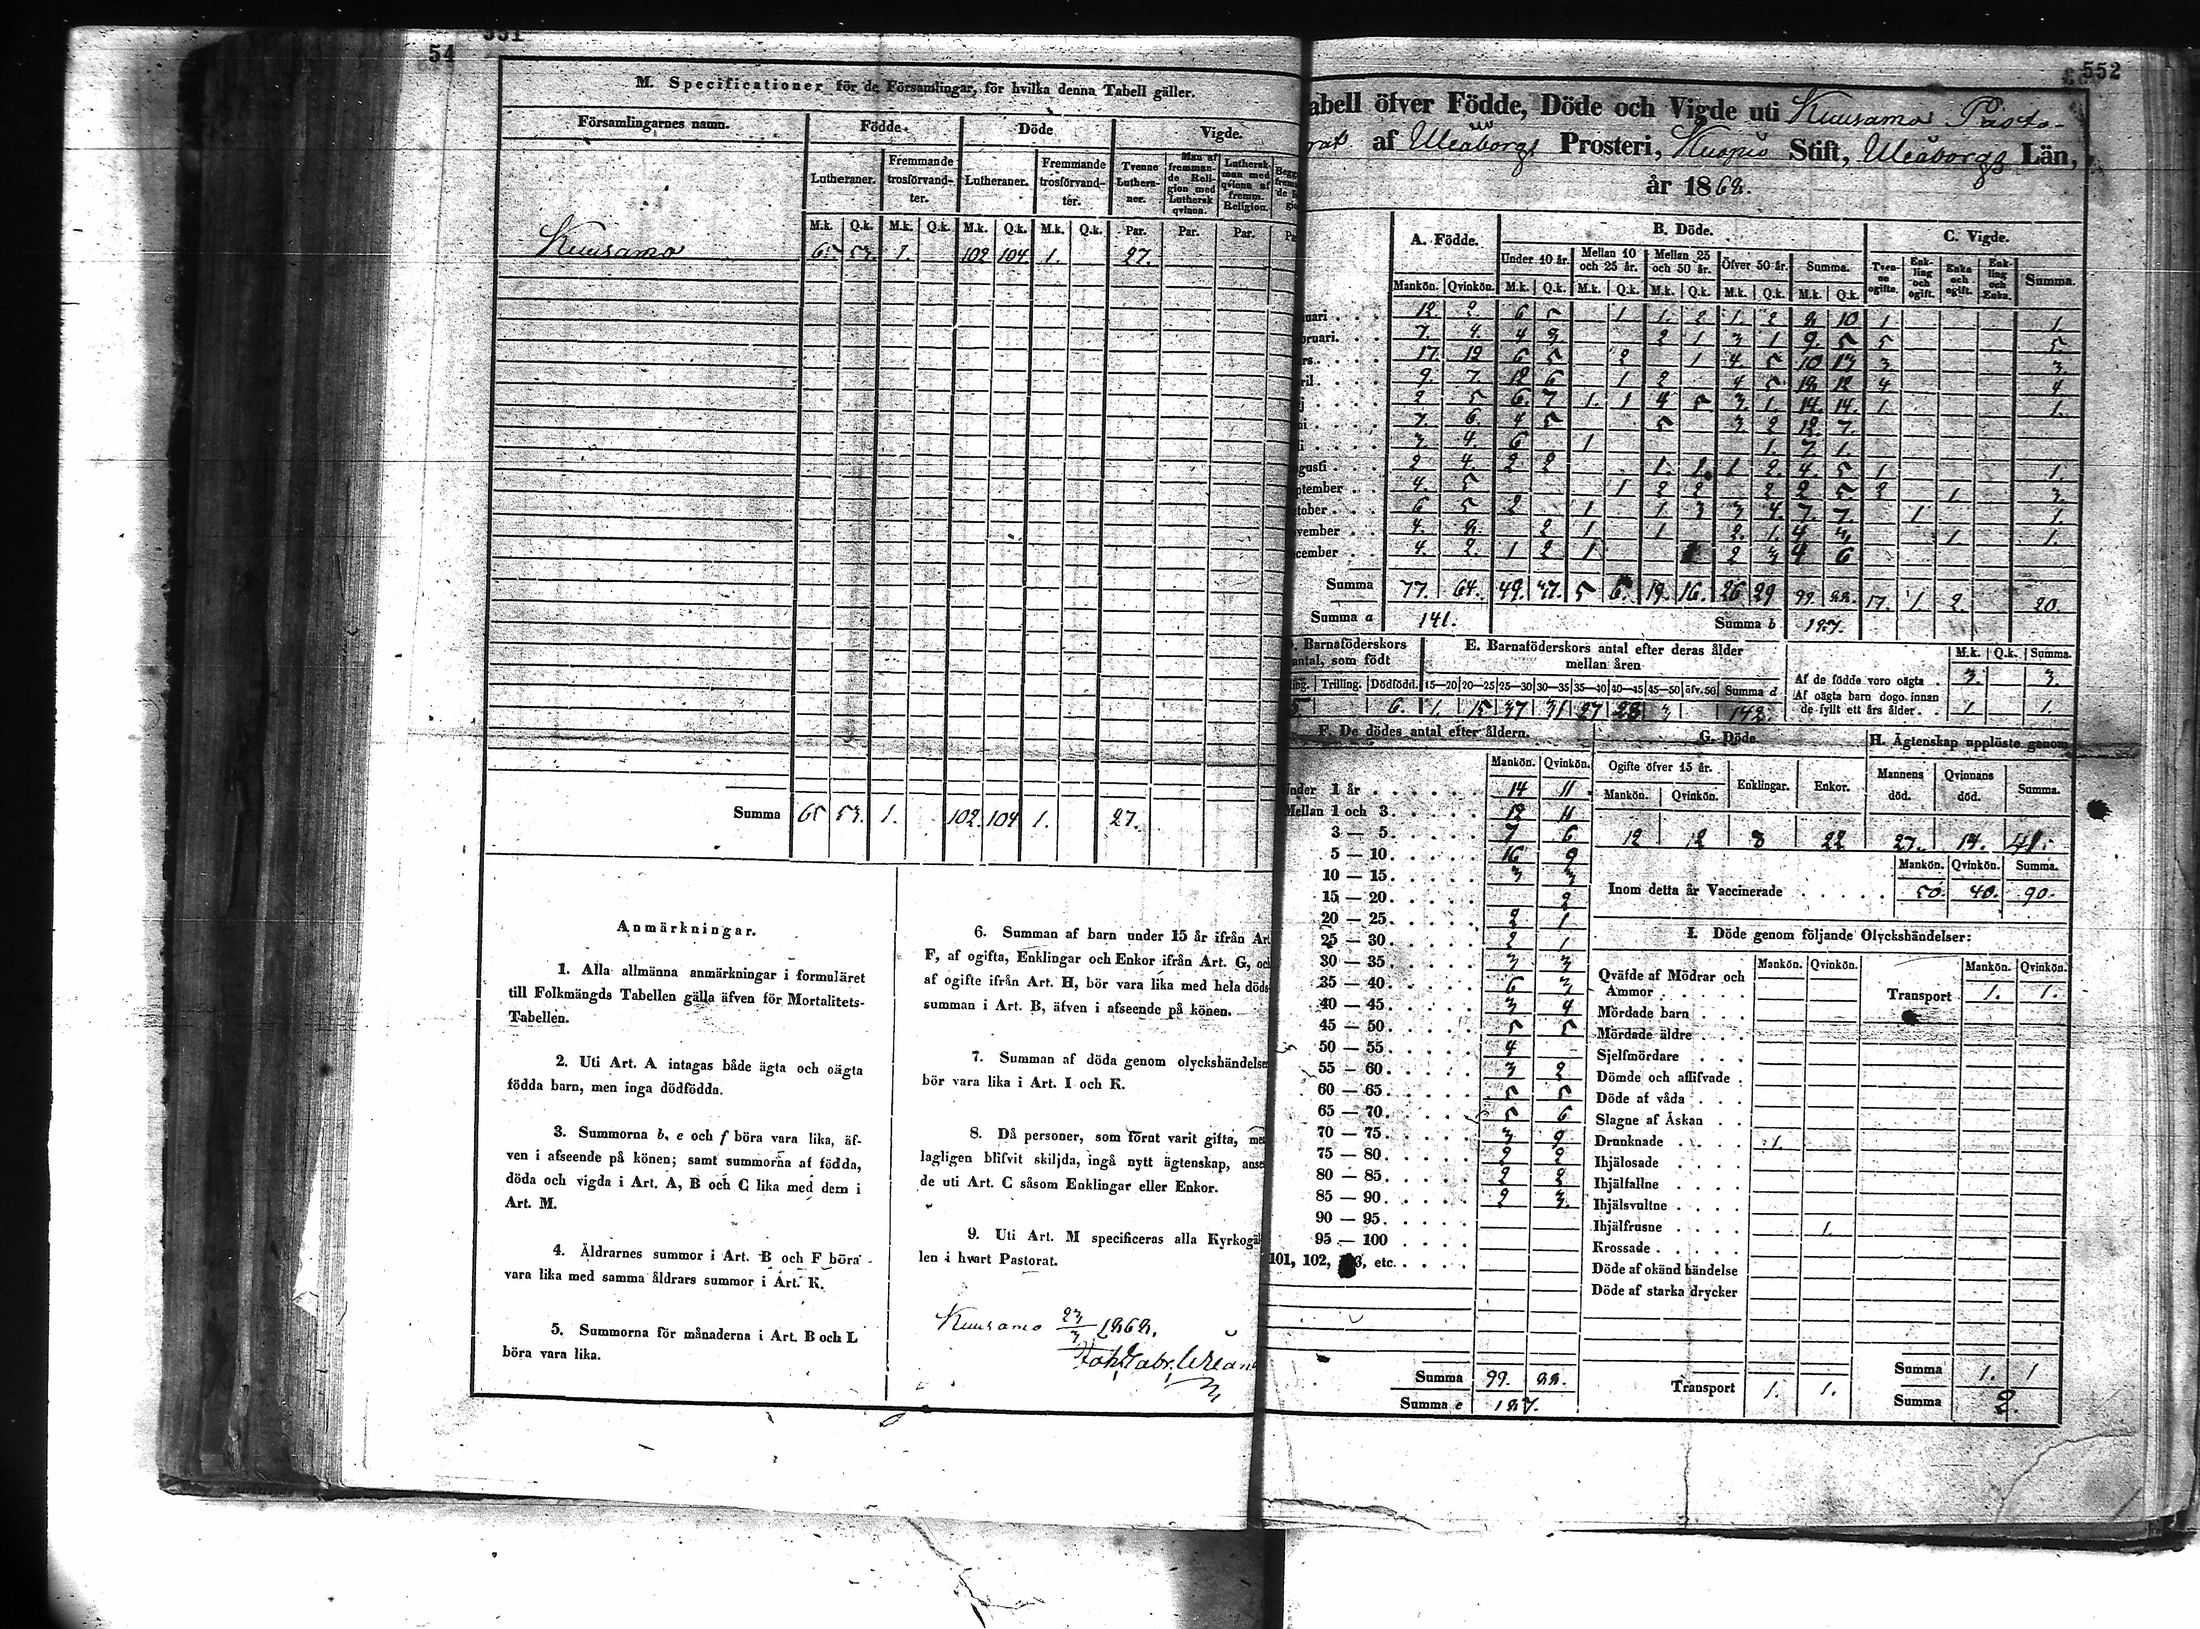 54
551
M. Specificationer för de Församlingar, för hvilka denna Tabell gäller.
Församlingarnes namn. Födde. Döde Vigde.
Lutheraner. Fremmande trosförvandter. Lutheraner. Fremmande trosförvandter. Tvenne Lutheraner. Man af fremmande Religion med Luthersk qvinna. Luthersk man med qvinna af fremm. Religion.
M.k. Q.k. M.k. Q.k. M.k. Q.k. M.k. Q.k. Par. Par. Par.
Kuusamo 65 53. 1. 102 104. 1. 27.
Summa 65 53. 1. 102. 104 1. 27.
Anmärkningar.
1. Alla allmänna anmärkningar i formuläret
till Folkmängds Tabellen gälla äfven för Mortalitets-
Tabellen.
2. Uti Art. A intagas både ägta och oägta
födda barn, men inga dödfödda.
3. Summorna b, e och f böra vara lika, äf-
ven i afseende på könen; samt summorna af födda,
döda och vigda i Art. A, B och C lika med dem i
Art. M.
4. Åldrarnes summor i Art. B och F böra
vara lika med samma åldrars summor i Art. K.
5. Summorna för månaderna i Art. B och L
böra vara lika.
6. Summan af barn under 15 år ifrån Art
F, af ogifta, Enklingar och Enkor ifrån Art. G, och
af ogifte ifrån Art. H, bör vara lika med hela döds
summan i Art. B, äfven i afseende på könen.
7. Summan af döda genom olyckshändelse
bör vara lika i Art. I och K.
8. Då personer, som förut varit gifta, me
lagligen blifvit skiljda, ingå nytt ägtenskap, anse
de uti Art. C såsom Enklingar eller Enkor.
9. Uti Art. M specificeras alla Kyrkogäl
len i hvart Pastorat.
Kuusamo 23/3 1868.
552
abell öfver Födde, Döde och Vigde uti Kuusamo Pasto-
rat af Uleåborgs Prosteri, Kuopio Stift, Uleåborgs Län,
år 1862.
A. Födde. B. Döde. C. Vigde.
Under 10 år. Mellan 10 och 25 år. Mellan 25 och 50 år. Öfver 50 år. Summa. Tvenne ogifte. Enkling och ogift. Enka och ogift. Enkling och Enka. Summa.
Mankön. Qvinkön. M.k. Q.k. M.k. Q.k. M.k. Q.k. M.k. Q.k. M.k. Q.k.
uari 12 2. 6 5 1 1. 2 1. 2 8 10 1 1.
bruari. 7. 4. 4 3 2 1 3 1 9. 5 5 5.
rs. 17. 12 6 5 2 1 4. 5 10 13 3 3
ril 9. 7. 12 6 1 2 4 5 18 12 4 4
j 2 5 6. 7 1. 1 4 5 3. 1. 14. 14. 1 1.
ni 7. 6. 4 5 5 3 2 12 7.
li 3. 4. 6 1 1. 7 1.
gusti 2 4. 2 2 1. 1. 1 2. 4. 5 1 1.
ptember 4. 5 1 2 2 2 2 5 2 1 3.
tober 6 5 2 1 1 3 3 4. 7. 7. 1 1.
vember 4. 8. 2 1 1 2. 1. 4 3 1 1.
cember 4. 2. 1 2 1 2 3 4 6
Summa 77. 64. 49. 37. 5 6. 19. 16. 26 29 99 88. 17. 1. 2. 20.
Summa a 141. Summa b 187.
Barnaföderskors antal, som födt
E. Barnaföderskors antal efter deras ålder mellan åren
ling. Trilling. Dödfödd. 15—20 20—25 25—30 30—35 35—40 40—45 45—50 öfv. 50 Summa d
5. 6. 1. 15 37 31 27 28 3 142.
M.k. Q.k. Summa.
Af de födde voro oägta 3. 3.
Af oägta barn dogo innan
de fyllt ett års ålder 1 1.
F. De dödes antal efter åldern.
Mankön. Qvinkön.
Under 1 år 14 11
Mellan 1 och 3. 12 11
3 — 5. 7 6
5 — 10. 16 9
10 — 15. 3 3
15 — 20. 2
20 — 25. 2 1
25 — 30. 2 1
30 — 35. 3 3
35 — 40. 6 3
40 — 45. 3 4
45 — 50. 5 5
50 — 55. 4
55 — 60. 3 2
60 — 65. 5 5
65 — 70. 5 6
70 — 75. 3 9
75 — 80. 2 2
80 — 85. 2 2
85 — 90. 2 3.
90 — 95.
95 — 100
101, 102, 103, etc.
Summa 99. 88.
Summa e 187.
G. Döde
Ogifte öfver 15 år. Enklingar. Enkor.
Mankön. Qvinkön.
12 12 8 22
H. Ägtenskap upplöste genom
Mannens död. Qvinnans död. Summa.
27. 14. 41.
Mankön. Qvinkön. Summa.
Inom detta år Vaccinerade 50. 40. 90.
I. Döde genom följande Olyckshändelser:
Mankön. Qvinkön. Mankön. Qvinkön.
Qväfde af Mödrar och
Ammor Transport 1. 1.
Mördade barn
Mördade äldre
Sjelfmördare
Dömde och aflifvade
Döde af våda
Slagne af Åskan
Drunknade 1.
Ihjälosade
Ihjälfallne
Ihjälsvultne
Ihjälfrusne 1.
Krossade
Döde af okänd händelse
Döde af starka drycker
Transport 1. 1.
Summa 1. 1
Summa 2.